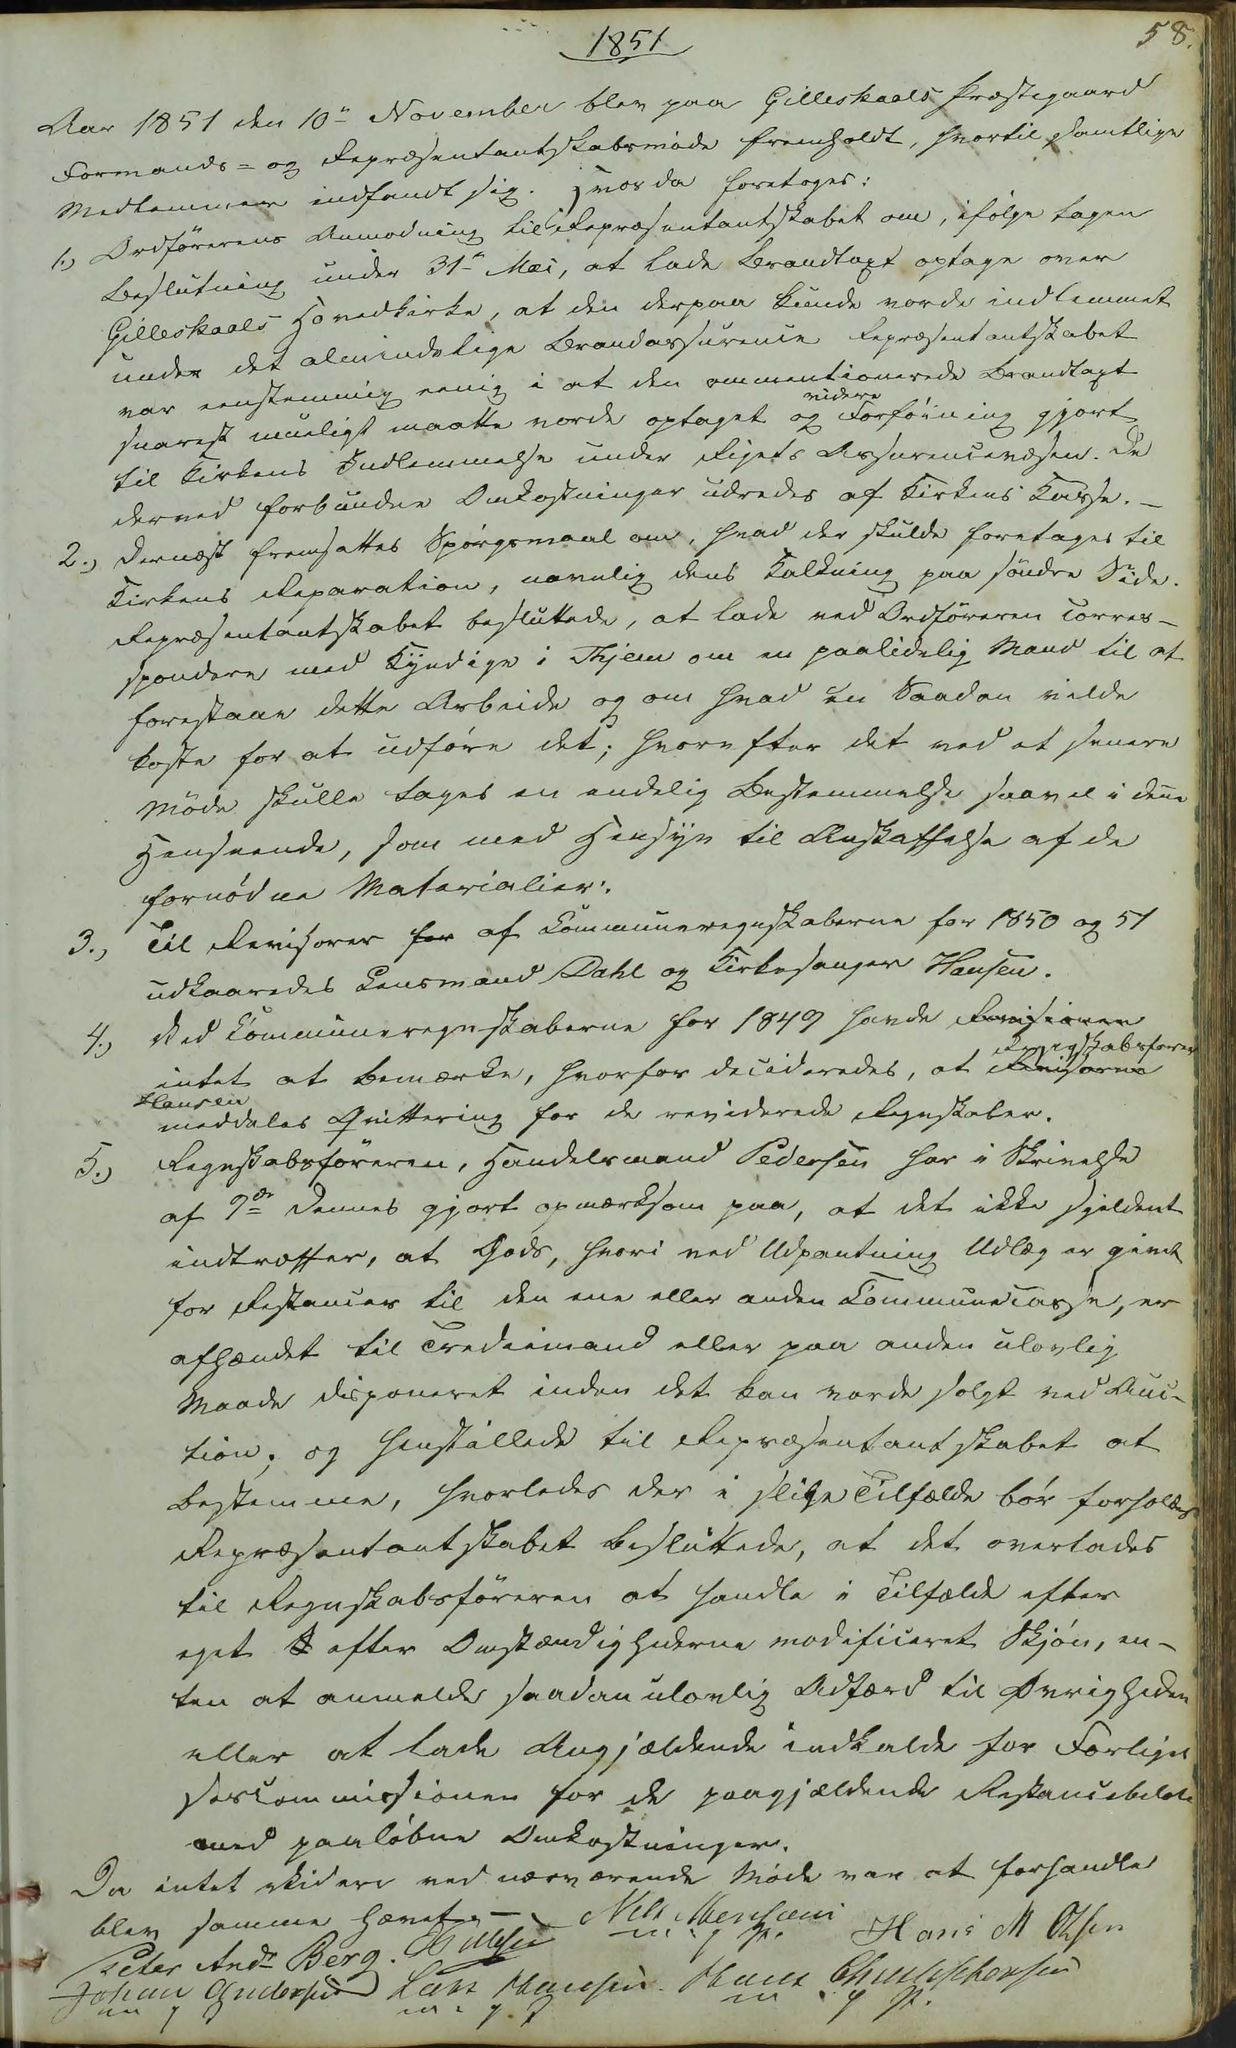 1851
58.
Aar 1851 den 10de November blev paa Gilleskaals Præstegaard
Formands- og Repræsentantskabsmöde fremholdt, hvortil samtlige
Medlemmer indfandt sig. Hvorda foretoges:
1.) Ordförerens Anmodning til Repræsentantskabet om, ifölge tagen
Beslutning under 31te Mai, at lade Brandtaxt optage over
Gilleskaals Hovedkirke, at den derpaa kunde vorde indlemmet
under det almindelige Brandassurence Repræsentantskabet
var eenstemmig eenig i at den ommentionerede Brandtaxt
snarest mueligt maatte vorde optaget og videre Forföining gjort
til Kirkens Indlemmelse under Rigets Assurencevæsen. De
derved forbundne Omkostninger udredes af Kirkens Kasse. —
2.) Dernæst fremsattes Spörgsmaal om, hvad der skulde foretages til
Kirkens Reparation, navnlig dens Kalkning paa söndre Side.
Repræsentantskabet besluttede, at lade ved Ordföreren corres-
spondere med Kyndige i Thjem om en paalidelig Mand til at
forestaae dette Arbeide og om hvad en Saadan vilde
koste for at udföre det; hvorefter det ved et senere
Möde skulle tages en endelig Bestemmelse saavel i denne
Henseende, som med Hensyn til Anskaffelse af de
fornödne Materialier.
3., Til Revisorer for af Kommuneregnskaberne for 1850 og 51
udkaaredes Lensmand Dahl og Kirkesanger Hansen.
4.) Ved Kommuneregnskaberne for 1849 havde Revisionen
intet at bemærke, hvorfor decideredes, at Revisorerne Regnskabsförer
Hansen
meddeles Qvittering for de reviderede Regnskaber.
5.) Regnskabsföreren, Handelsmand Pedersen har i Skrivelse
af 9de dennes gjort opmærksom paa, at det ikke sjeldent
indtræffer, at Gods, hvori ved Udpantning Udlæg er givet
for Restancer til den ene eller anden Communecasse, er
afhændet til Trediemand eller paa anden ulovlig
Maade disponeret inden det kan vorde solgt ved Auc-
tion, og henstillede til Repræsentantskabet at
bestemme, hvorledes der i slige Tilfælde bör forholdes
Repræsentantskabet besluttede, at det overlades
til Regnskabsföreren at handle i Tilfælde efter
eget efter Omstændighederne modificeret Skjön, en-
ten at anmelde saadan ulovlig Adfærd til Övrigheden
eller at lade Angjældende indkalde for Forligel
sescommissionen for de paagjældende Restancebelöb
med paalöbne Omkostninger.
Da intet videre ved nærværende Möde var at forhandle
blev samme hævet. —
Peter Andr Berg. Hans M Olsen
Johan Andersen Lars Hansen Hans Christophersen